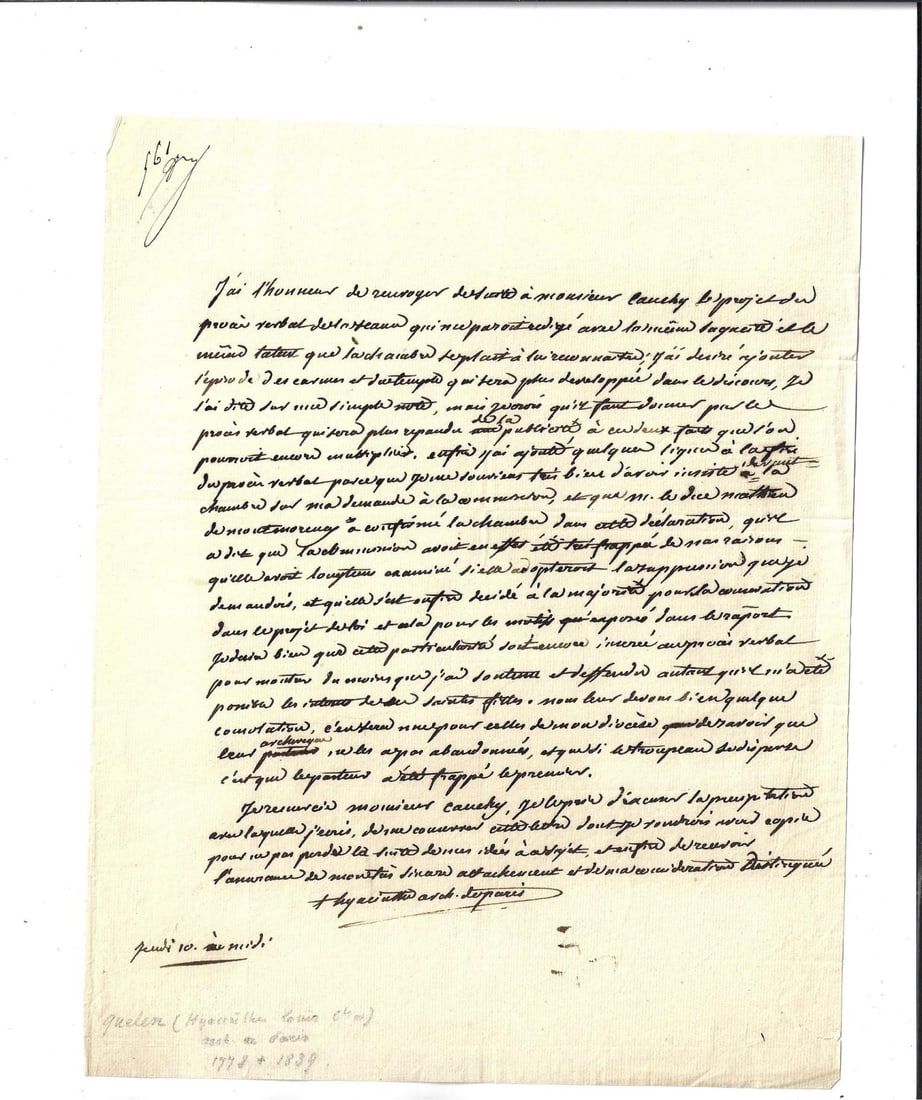 J'ai l'honneur de renvoyer de suite à monsieur Cauchy le projet du
procès verbal de la séance qui me paroit redigé avec la même sagacité et le
même talent que la chambre se plait à lui reconnaitre; j'ai desiré ajouter
l'episode des carmes et du temple qui sera plus developpée dans le discours, je
l'ai dité sur une simple note, mais je crois qu'il faut donner par le
procès verbal qui sera plus repandu de la publicité à ces deux faits que l'on
pourroit encore multiplier. enfin j'ai ajouté quelques lignes à la fin
du procès verbal parce que je me souviens très bien d'avoir insisté devant la
chambre sur ma demande à la commission, et que m. le duc mathieu
de montmorency a confirmé la chambre dans cette déclaration, qu'il
a dit que la commission avoit en effet été très frappée de nos raisons
qu'elle avoit longtems examiné si elle adopteroit la suppression que je
demandois, et qu'elle s'est enfin decidé à la majorité pour la conservation
dans le projet de loi et cela pour les motifs exposés dans le raport
je desire bien que cette particularité soit encore inserée au procès verbal
pour montrer du moins que j'ai soutenu et deffendu autant qu'il m'a été
possible les interets de ces saintes filles. nous leur devons bien quelque
consolation, c'en sera une pour celles de mon diocèse de savoir que
leur archeveque ne les a pas abandonnés, et que si le troupeau se disperse
c'est que le pasteur a été frappé le premier.
Je remercie monsieur Cauchy, je le prie d'excuser la precipitation
avec laquelle j'ecris, de me conserver cette lettre dont je voudrois avoir copie
pour ne pas perdre la suite de mes idées à ce sujet, et enfin de recevoir
l'assurance de mon très sincere attachement et de ma consideration distingué
+ hyacinthe arch. de paris
jeudi 10. à midi
Quelen (Hyacinthe Louis Cte de)
arch. de Paris
1778 + 1839.